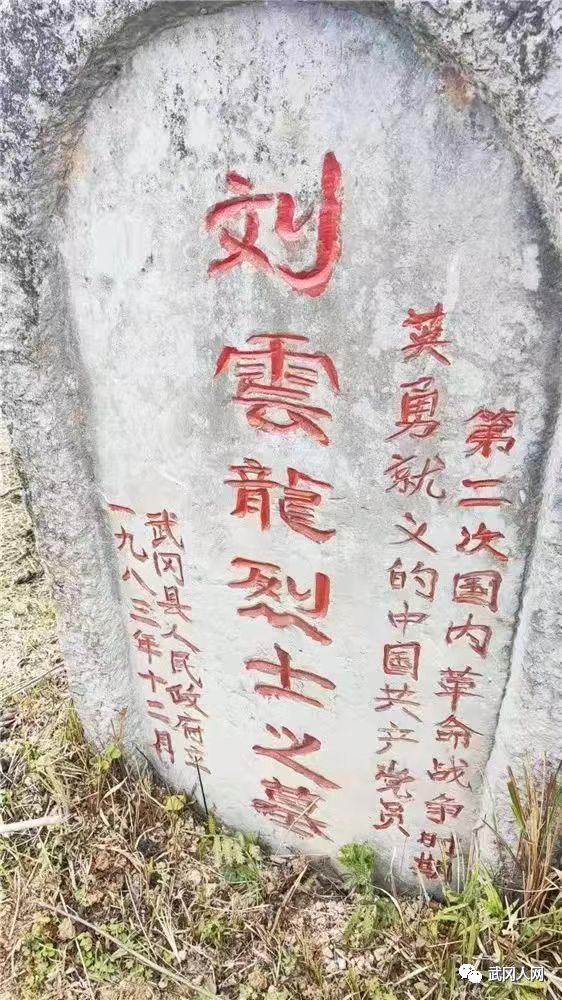 第二次国内革命战争时期
英勇就义的中国共产党员
刘雲龍烈士之墓
武冈县人民政府立
一九八三年十二月
武冈人网